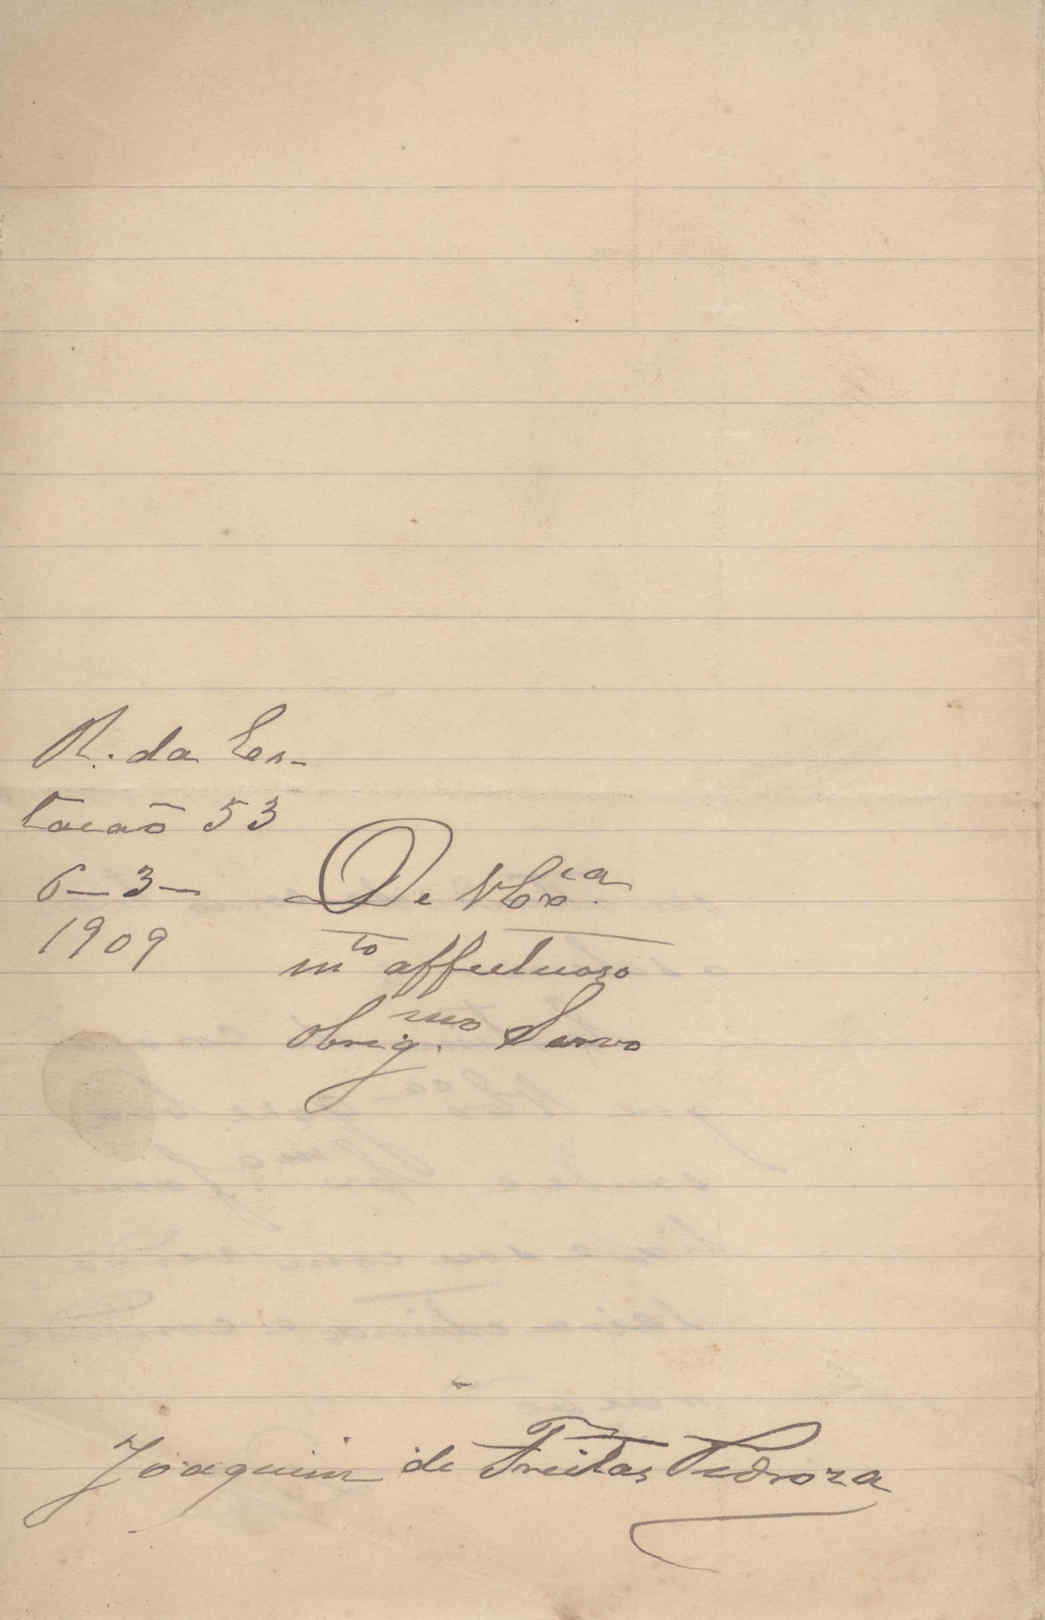 R. da Es-
tacaõ 53
6-3-
1909
De V Exᶜᵃ.
mᵗᵒ affectuoso
obrigᵐᵒ. Servo
Joaquim de Freitas Pedroza